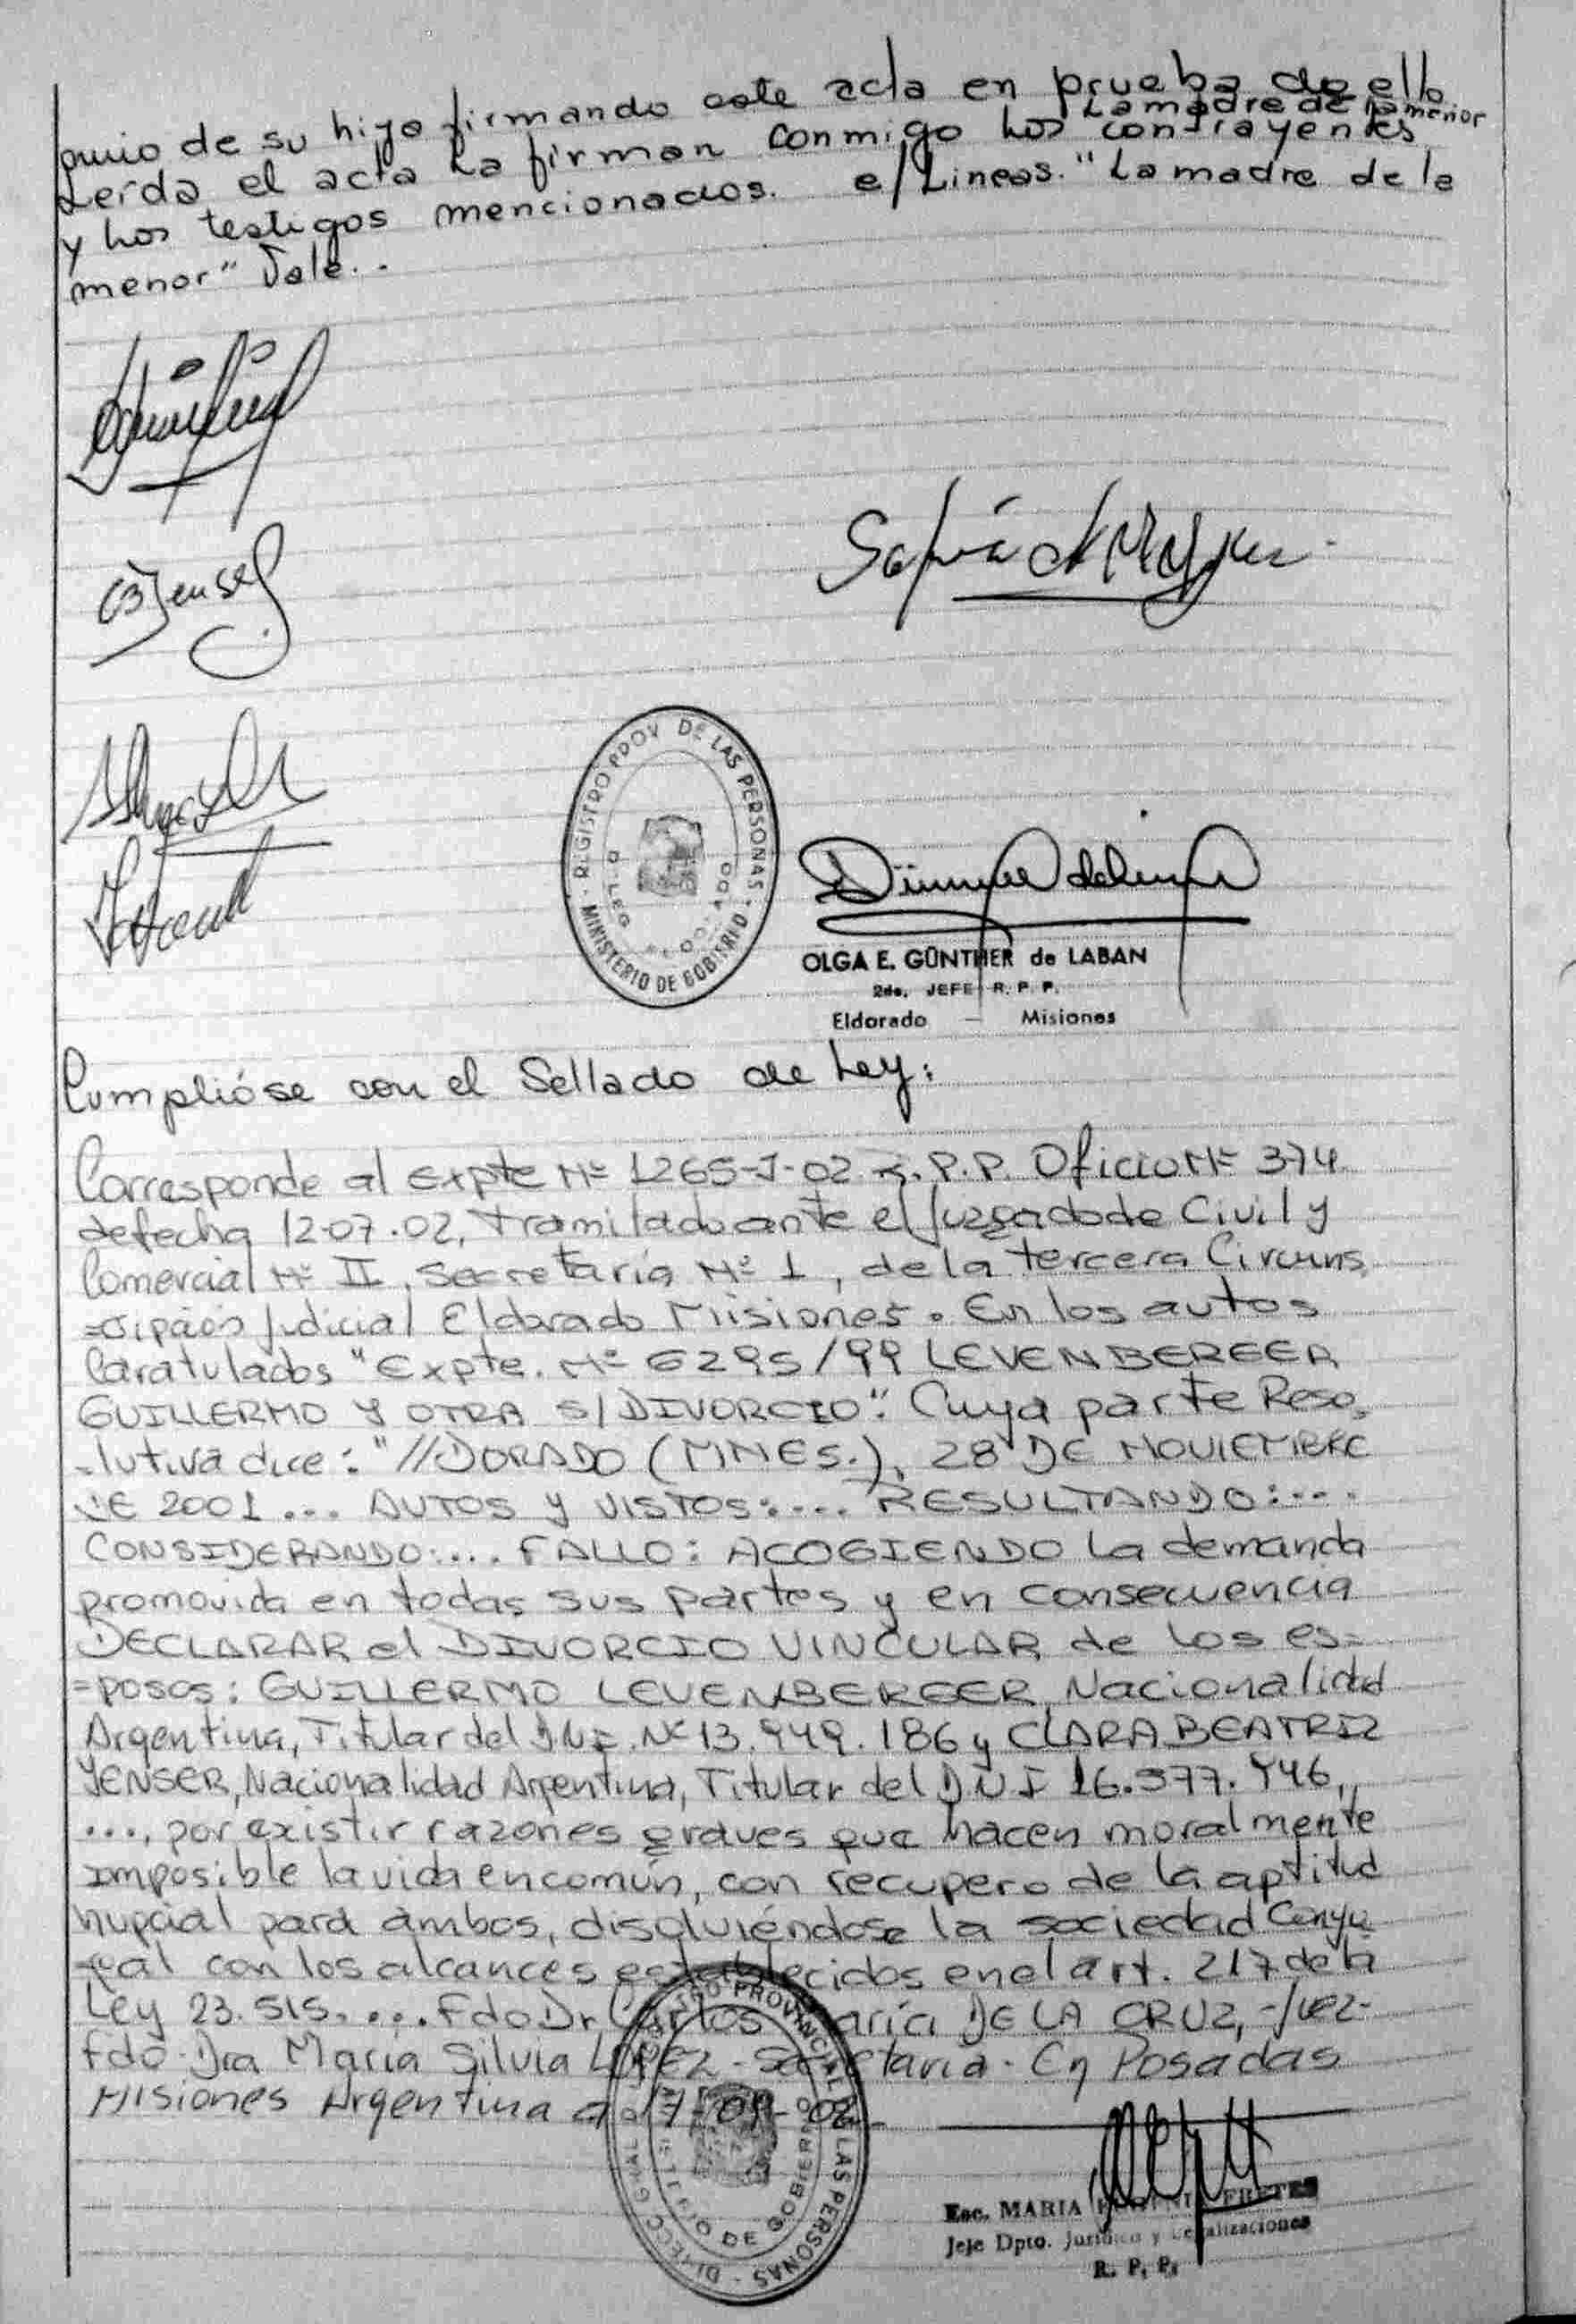 de su hijo firmando este acta en prueba de ello
La madre de la menor
Leída el acta La firman conmigo Los contrayentes
y Los testigos mencionados. e/Lineas. "La madre de la
menor" Vale..
REGISTRO PROV DE LAS PERSONAS - MINISTERIO DE GOBIERNO
OLGA E. GÜNTHER de LABAN
2da. JEFE R. P. P.
Eldorado — Misiones
Cumplióse con el Sellado de Ley:
Corresponde al Expte Nº 1265-J-02 R.P.P. Oficio Nº 374
de fecha 12-07-02, Tramitado ante el Juzgado de Civil y
Comercial Nº II, Secretaría Nº 1, de la tercera Circuns
=cipción Judicial Eldorado Misiones. En los autos
Caratulados "Expte. Nº 6295/99 LEVENBERGER
GUILLERMO Y OTRA S/DIVORCIO". Cuya parte Reso
-lutiva dice: "//DORADO (MNES.), 28 DE NOVIEMBRE
DE 2001... AUTOS Y VISTOS:.... RESULTANDO:...
CONSIDERANDO:... FALLO: ACOGIENDO la demanda
promovida en todas sus partes y en consecuencia
DECLARAR el DIVORCIO VINCULAR de los es=
=posos: GUILLERMO LEVENBERGER, Nacionalidad
Argentina, Titular del D.N.I. Nº 13.949.186 y CLARA BEATRIZ
YENSER, Nacionalidad Argentina, Titular del D.N.I 16.377.446,
..., por existir razones graves que hacen moralmente
imposible la vida en común, con recupero de la aptitud
nupcial para ambos, disolviéndose la sociedad Conyu
-gal con los alcances establecidos en el art. 217 de la
Ley 23.515. ... Fdo Dr Carlos María DE LA CRUZ, -Juez-
Fdo-Dra María Silvia LOPEZ - Secretaria. En Posadas
Misiones Argentina a 17-09-02
DIRECC GRAL D REGISTRO PROVINCIAL DE LAS PERSONAS - MINISTERIO DE GOBIERNO
Esc. MARIA EUGENIA FRETES
Jefe Dpto. Jurídico y Legalizaciones
R. P. P.